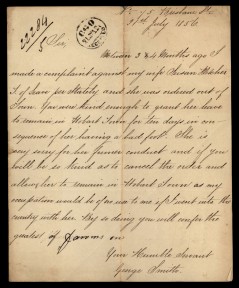 31st July 1856
Sir,
Between 3 & 4 Months ago I
made a complaint against my wife Susan
and she was ordered out of
Town. You were kind enough to grant her leave
to remain in Hobart Town for ten days in con-
sequence of her having a bad foot. She is
very sorry for her former conduct and if you
will be so kind as to cancel the order and
allow her to remain in Hobart Town as my
occupation would be of no use to me if I went into the
country with her. By so doing you will confer the
greatest of favours on
Your Humble Servant
George Smith.